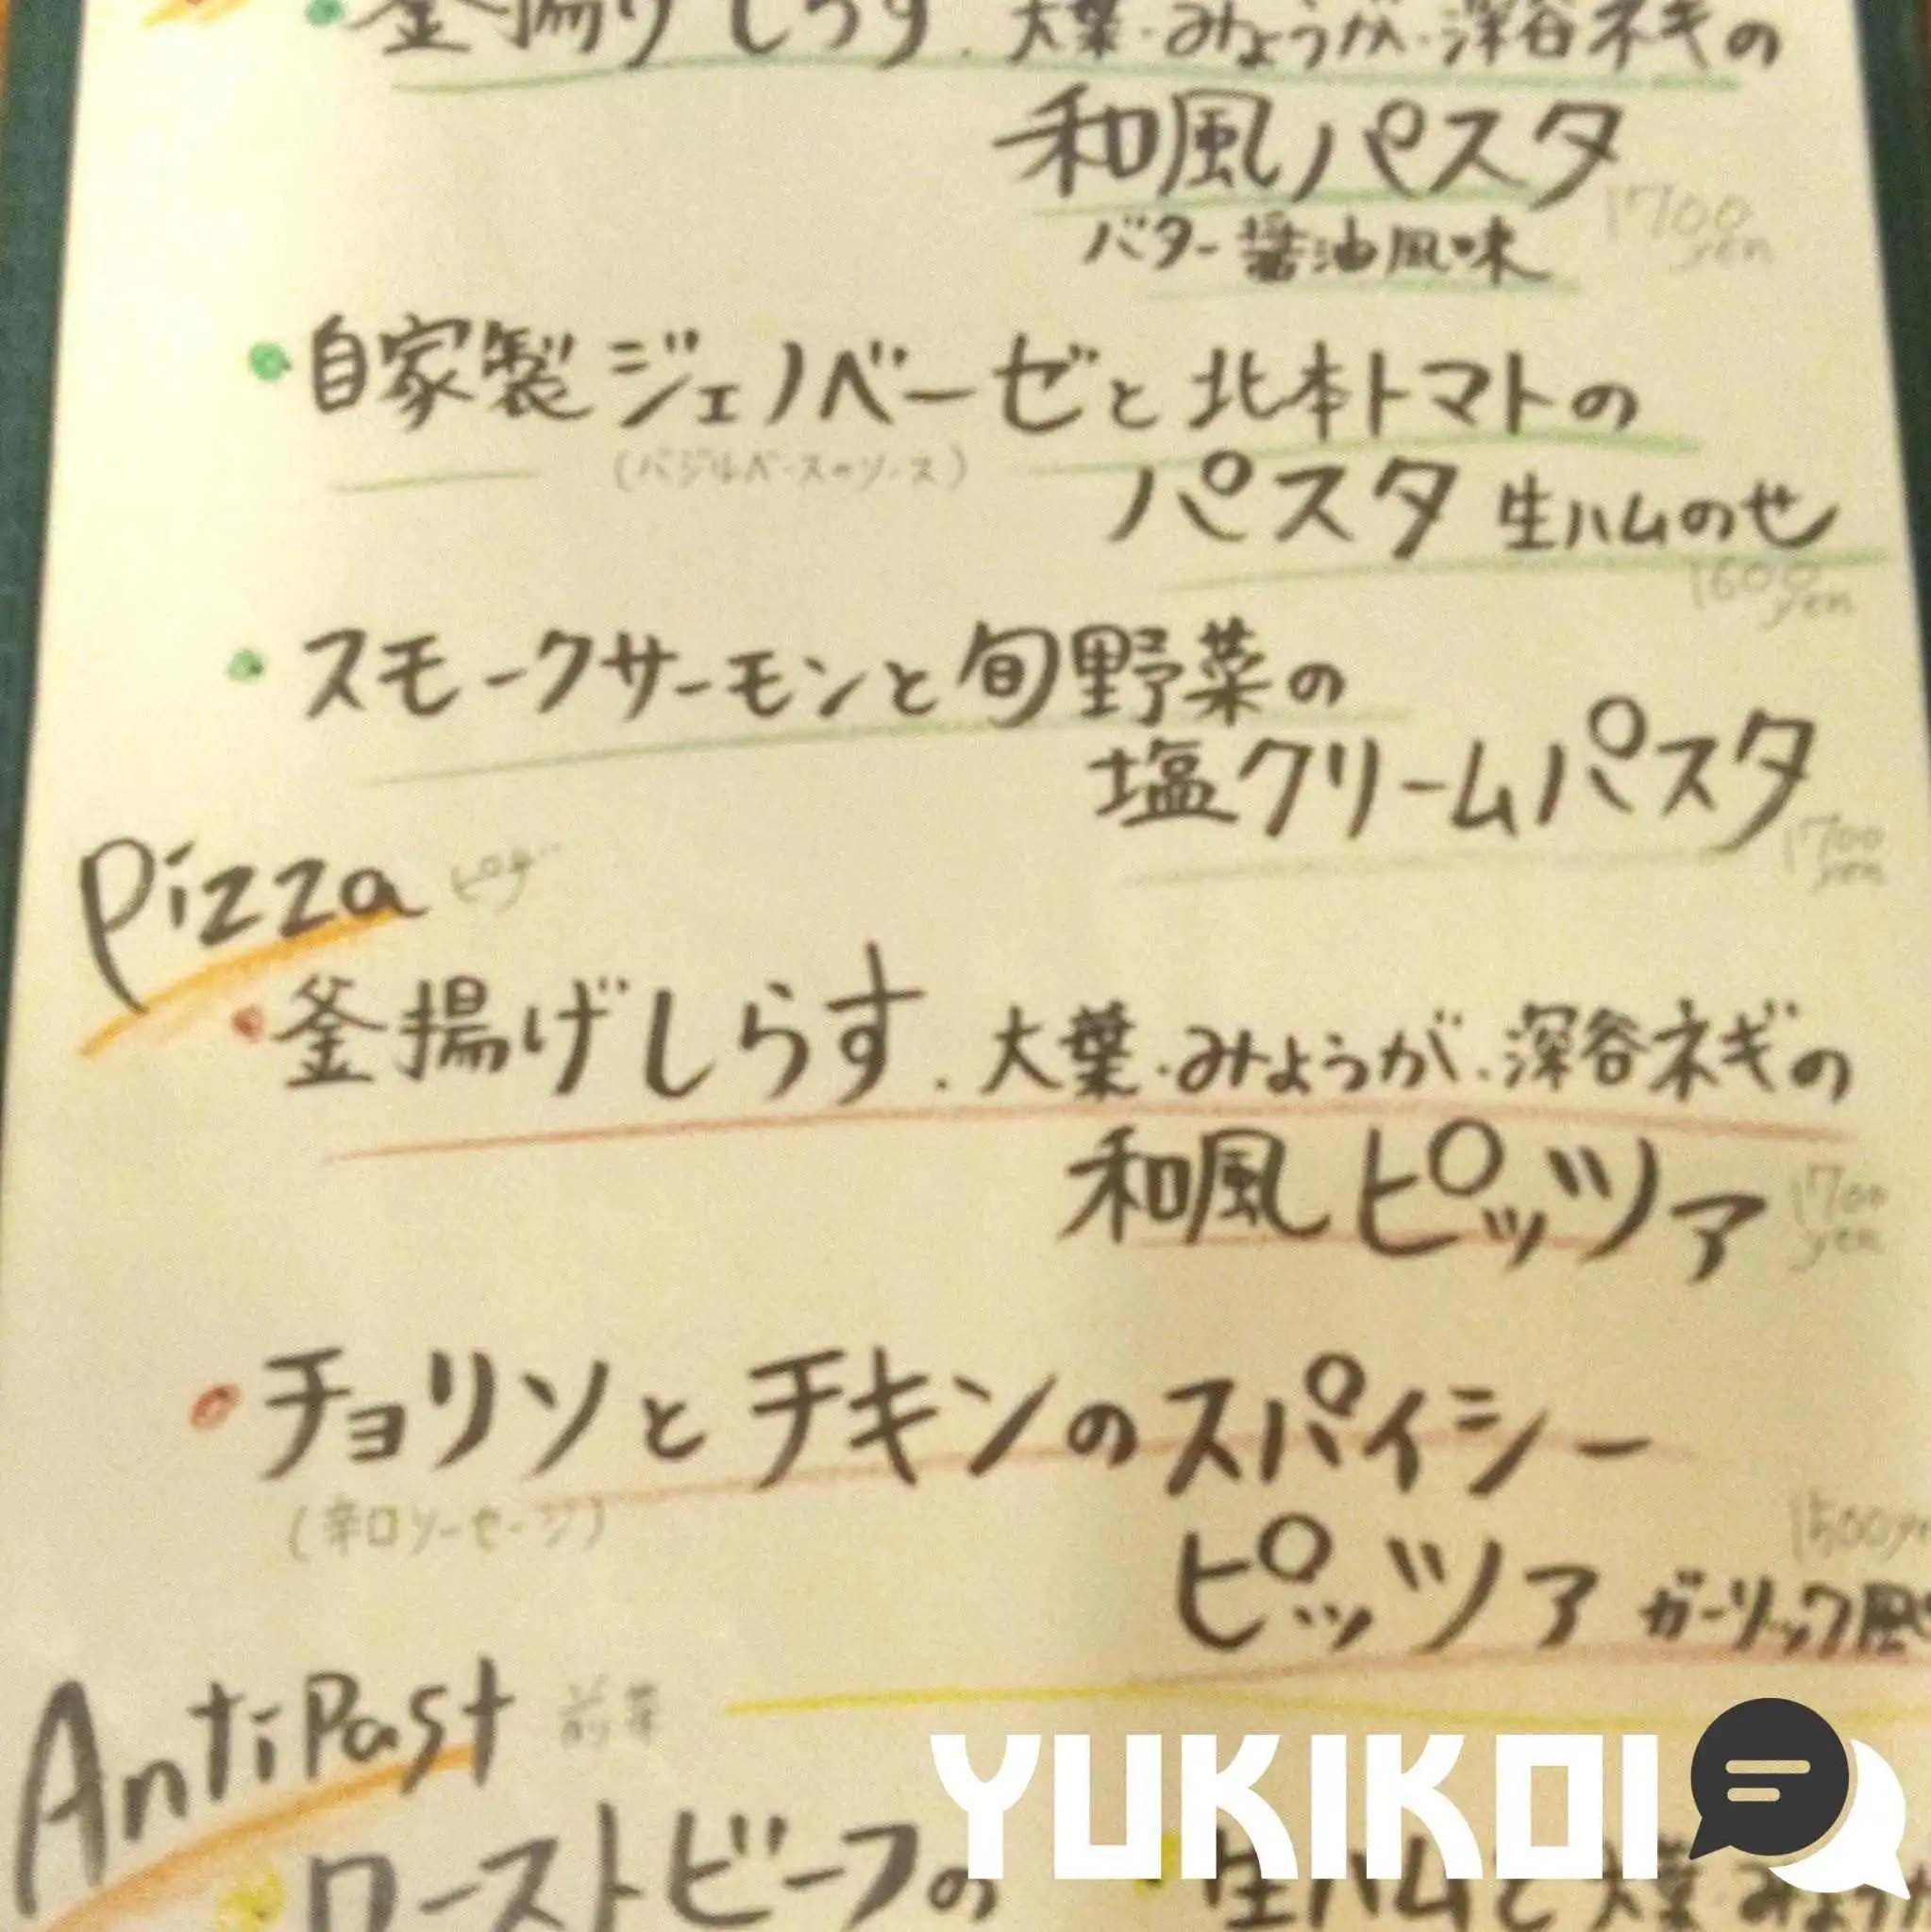 釜揚げしらす．大葉・みょうが・深谷ネギの
和風パスタ
1700
yen
バター醤油風味
自家製ジェノベーゼと北本トマトの
(バジルベースのソース)
パスタ 生ハムのせ
1600
yen
スモークサーモンと旬野菜の
塩クリームパスタ
1700
yen
Pizza ピザ
釜揚げしらす．大葉・みょうが・深谷ネギの
和風ピッツァ
1700
yen
チョリソとチキンのスパイシー
(辛口ソーセージ)
1500ye
ピッツァ ガーリック風
AntiPast 前菜
YUKIKOI
ローストビーフの
生ハムと大葉・みょうが